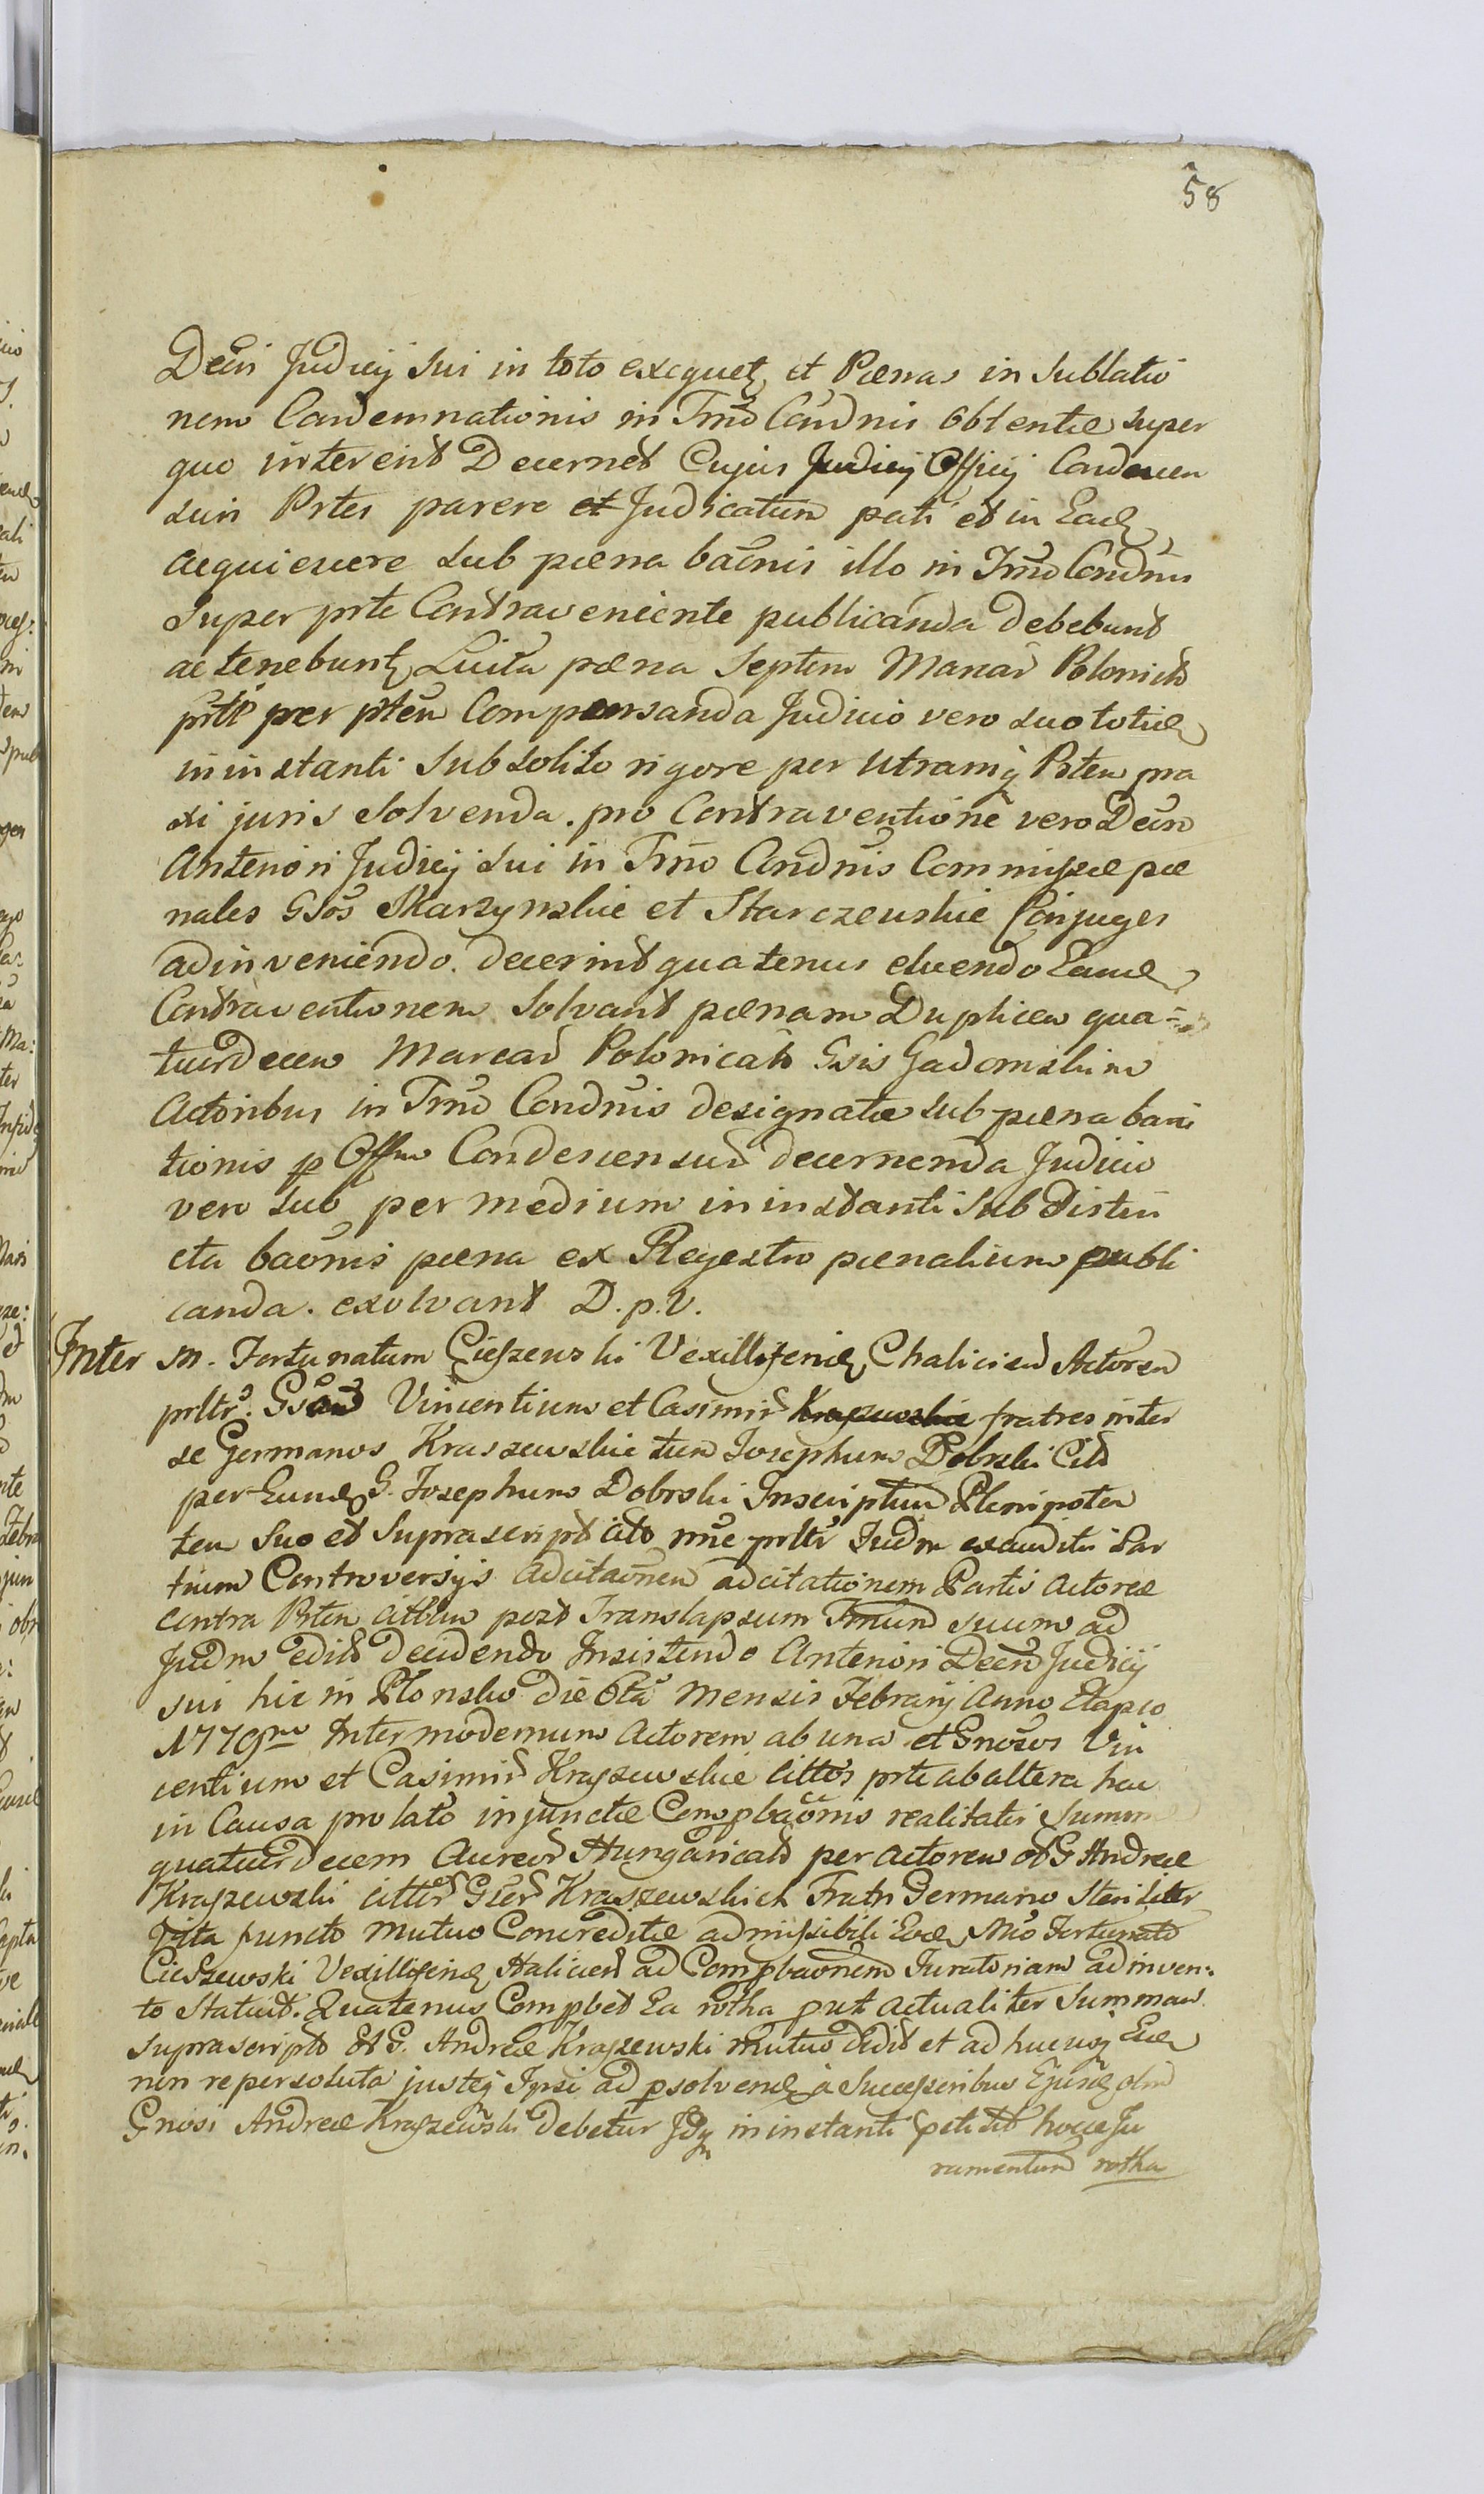 58
Decri Judicij sui in toto exequet et Pœnas in Sublatio
nem Condemnationis in Trno Condnis Obtentæ super
quo intererit Decernet Cujus Judicij Officij Condescen
suri Prtes parere et Judicatum pati et in Ead
acquiescere sub pœna baõnis illo in Trno Condnis
super prte Contraveniente publicanda debebunt
ac tenebunt Luita pœna Septem Marcar Polonical
prti per prtem Compensanda Judicio vero suo totid
in instanti sub solito rigore per Utramq Prtem pra
xi juris solvenda. pro Contraventione vero Decr
Anterion Judicij sui in Trno Condnis Commissæ pœ
nales Gsos Skarzynskie et Starczewskie Conjuges
adinveniendo. decernit quatenus eluendo Eand
Contraventionem Solvant pœnam Duplicem qua=
tuordecem Marcar Polonical Gsis Gadomskim
Actoribus in Trno Condnis designatæ sub pœna bani
tionis p Offm Condescensur decernenda Judicio
vero suo per medium in instanti sub distin
cta baonis pœna ex Regestro pœnalium publi
canda. exolvant D.p.V.
Inter M. Fortunatum Cieszewski Vexilliferid Chalicien Actorem
prltr. Gsos Vincentium et Casimir Kraszewskie fratres inter
se Germanos Kraszewskie tum Josephum Dobrski Cit
per Eund G. Josephum Dobrski Inscriptum Plenipoten
tem Suo et Suprascript cit nne prltr Judm exauditis Par
tium Controversijs adcitaonem adcitationem Partis Actoreæ
contra Prtem Cittam post Translapsum Trnum suum ad
Judm edit decidendo Insistendo Anteriori Decr Judicij
sui hic in Płonsko die 6ta Mensis Febrarij Anno Elapso
1779no Inter modernum Actorem ab una et Gnosos Vin
centium et Casimir Kraszewskie cittos prte ab altera hac
in Causa prolato injunctæ Compbaonis realitatis Summæ
quatuordecem Aureor Hungarical per Actorem ol G Andreæ
Kraszewski citter Gser Kraszewskich Fratri Germano Steriliter
facto functo mutuo Concreditæ admissibili Eod Mco Fortunato
Cieszewski Vexilliferid Halicien ad Compbaonem Juratoriam adinven:
to Statuit. Quatenus Compbet Ea rotha put actualiter Summam
suprascript ol G. Andreæ Kraszewski mutuo dedit et ad hucusq Ead
non repersoluta justeq Ipsi ad psolvend à Successoribus Ejusd olm
Gnosi Andreæ Kraszewski debetur Idq in instanti petiit hocce Ju
ramentum rotha